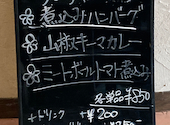 煮込みハンバーグ
山椒キーマカレー
ミートボールトマト煮込み
各単品¥850
+ドリンク +¥200